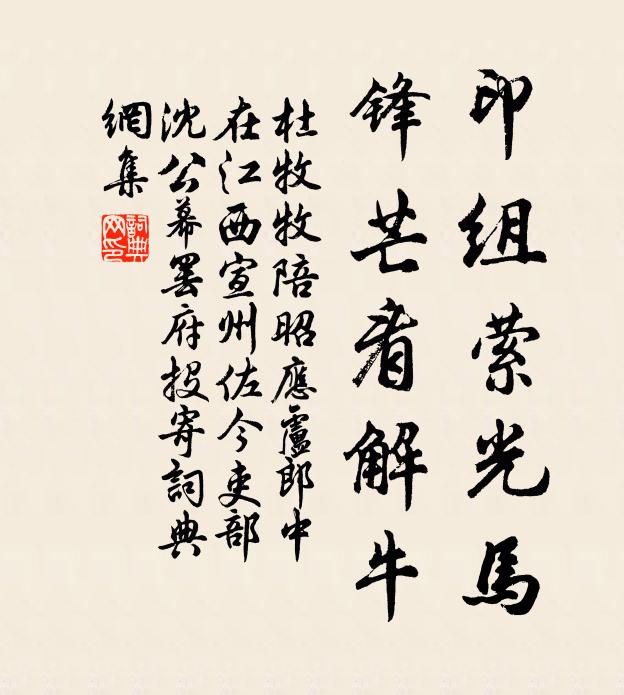 印組縈光馬
鋒芒看解牛
杜牧牧陪昭應盧郎中
在江西宣州佐今吏部
沈公幕罷府投寄詞典
網集
詞典網印